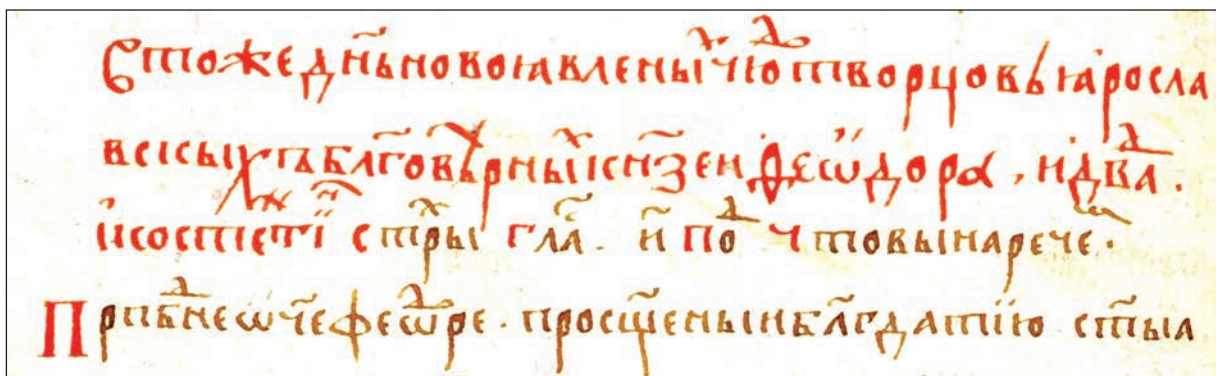 Втоже дн҃ь новоꙗвленыⷯ чюⷣтворцовъ ꙗросла
вскыхъ бл҃говѣрныⷯ кн҃зеи ѳеѡдора , и дв҃ⷣа .
и стⷯры гла҃ . и҃ поⷣ что вы нарече҃ⷨ .
Прпⷣбне ѡч҃е феѡⷣре . просщ҃еныи бл҃гдатїю ст҃ыа